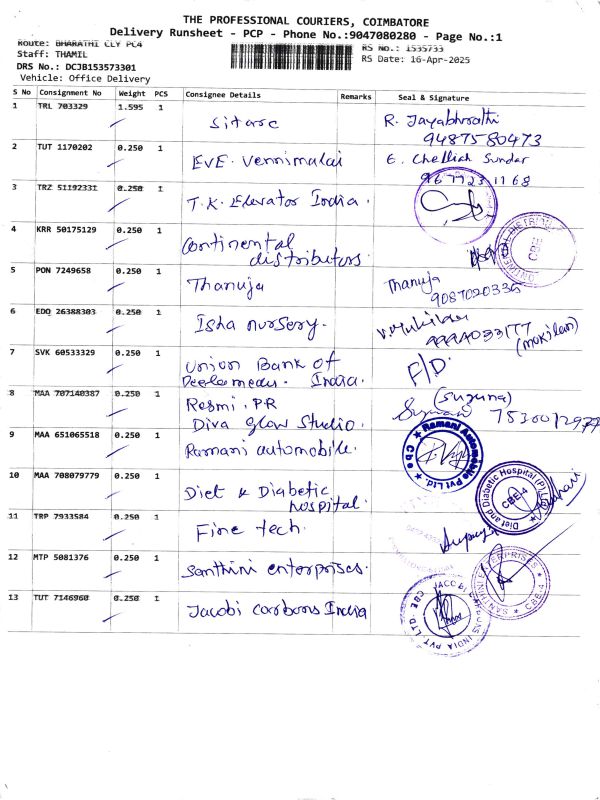 THE PROFESSIONAL COURIERS, COIMBATORE
Delivery Runsheet - PCP - Phone No.:9047080280 - Page No.:1
Route: BHARATHI CLY PC4
Staff: THAMIL
DRS No.: DCJB153573301
Vehicle: Office Delivery
RS No.: 1535733
RS Date: 16-Apr-2025
S No Consignment No Weight PCS Consignee Details Remarks Seal & Signature
1 TRL 703329 1.595 1 Sitarc R. Jayabharathi
9487580473
2 TUT 1170202 0.250 1 EVE. Vennimalai E. Chelliah Sundar
9677231168
3 TRZ 51192331 0.250 1 T.K. Elevator India.
4 KRR 50175129 0.250 1 Continental
distributors
CBE
5 PON 7249658 0.250 1 Thanuja Thanuja
9087020335
6 EDQ 26388303 0.250 1 Isha nursery.
(mukilan)
7 SVK 60533329 0.250 1 Union Bank of
Peelamedu. India. F/D.
8 MAA 707140387 0.250 1 Resmi. PR
Diva glow Studio. (Suguna)
9 MAA 651065518 0.250 1 Ramani automobile.
Ramani Automobile Pvt Ltd. Cbe
10 MAA 708079779 0.250 1 Diet & Diabetic
hospital.
Diet and Diabetic Hospital (P) Ltd CBE-4
11 TRP 7933584 0.250 1 Fine tech.
12 MTP 5081376 0.250 1 Santhini enterprises.
SANTHINI ENTERPRISES CBE-4
13 TUT 7146960 0.250 1 Jacobi carbons India
JACOBI CARBONS INDIA PVT LTD. CBE